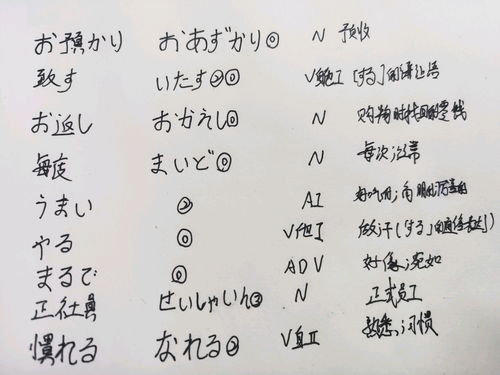 お預かり おあずかり⓪ N 预收
致す いたす②⓪ V他I [する]的谦让语
お返し おかえし⓪ N 购物时找回的零钱
每度 まいど⓪ N 每次;经常
うまい ② AI 好吃的;高明的
やる ⓪ V他I 做;干(「する」的通俗表达)
まるで ⓪ ADV 好像;宛如
正社員 せいしゃいん③ N 正式员工
慣れる なれる② V自II 熟悉;习惯